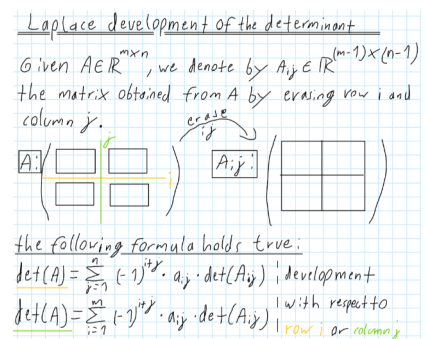 Laplace development of the determinant
Given A∈ℝ^{m×n}, we denote by A_{ij}∈ℝ^{(m-1)×(n-1)}
the matrix obtained from A by erasing row i and
column j.
erase
ij
j
A:
i
A_{ij}:
the following formula holds true:
det(A) = ∑_{j=1}^{n} (-1)^{i+j} · a_{ij} · det(A_{ij}) | development
| with respect to
det(A) = ∑_{i=1}^{m} (-1)^{i+j} · a_{ij} · det(A_{ij}) | row i or column j